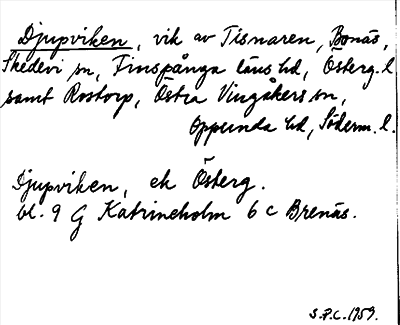 Djupviken, vik av Tisnaren, Bonäs,
Skedevi sn, Finspånga läns hd, Österg. l
samt Rostorp, Östra Vingåkers sn,
Oppunda hd, Söderm. l.
Djupviken, ek Österg.
bl. 9 G Katrineholm 6 c Brenäs.
S.P.C. 1959.